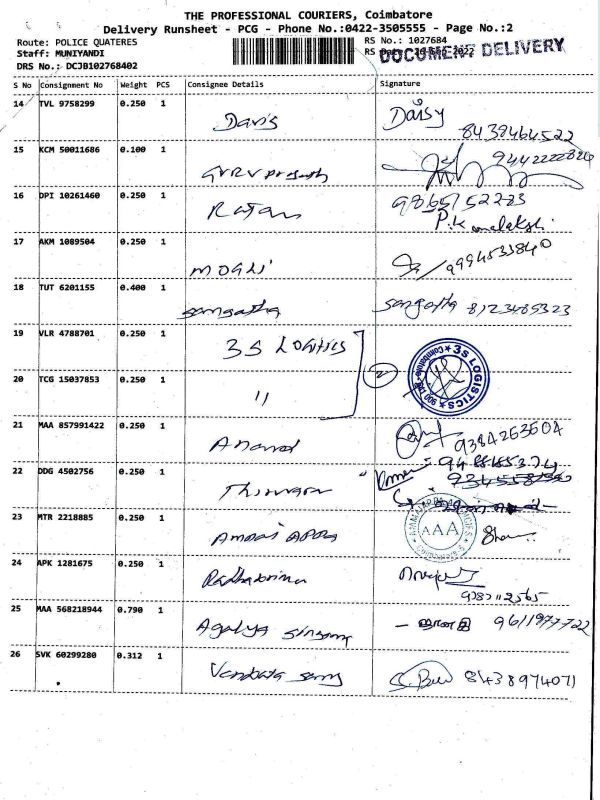 THE PROFESSIONAL COURIERS, Coimbatore
Delivery Runsheet - PCG - Phone No.:0422-3505555 - Page No.:2
Route: POLICE QUATERES RS No.: 1027684
Staff: MUNIYANDI RS Date: 2022
DOCUMENT DELIVERY
DRS No.: DCJB102768402
S No Consignment No Weight PCS Consignee Details Signature
14 TVL 9758299 0.250 1 Davis Daisy
8438464522
15 KCM 50011686 0.100 1
16 DPI 10261460 0.250 1 Rajan 9865152223
P.Kamalakshi
17 AKM 1089504 0.250 1 MOGLI 9994533840
18 TUT 6201155 0.400 1 Sangatha Sangatha 8123485323
19 VLR 4788701 0.250 1 3S LOGITICS
3S LOGISTICS
Coimbatore
20 TCG 15037853 0.250 1 " 2
21 MAA 857991422 0.250 1 Anand 9384263604
22 DDG 4502756 0.250 1
23 MTR 2218885 0.250 1
AAA
24 APK 1281675 0.250 1 Radhakrina
25 MAA 568218944 0.790 1 Agalya 9611977722
26 SVK 60299280 0.312 1 Venkata Samy 8438974071